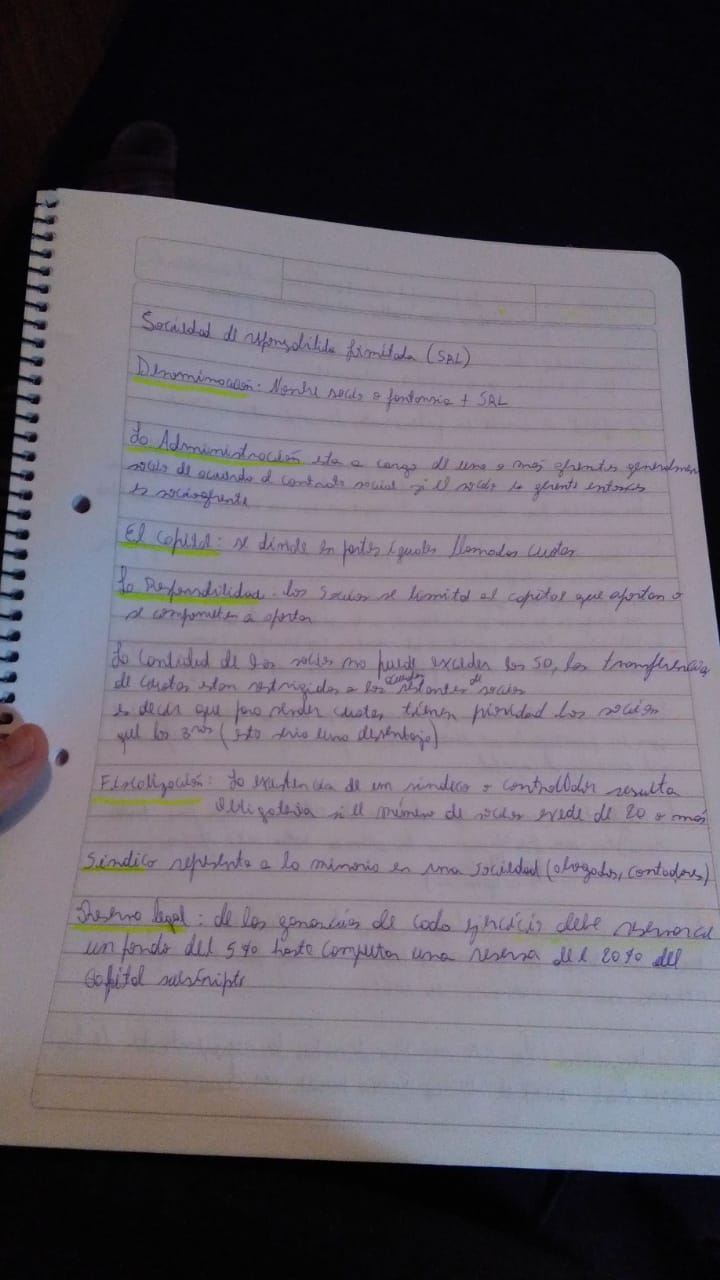 Sociedad de responsabilida limitada (SRL)
Denominacion: Nombre socio o fantansia + SRL
La Administración esta a cargo de uno o más gerentes generalmen
socio de acuerdo al contrato social si el socio es gerente entonces
es sociogerente
El capital: se divide en partes iguales llamadas cuotas
La Responsabilidad: los socios se limita al capital que aportan o
se comprometen a aportar
La cantidad de los socios no puede exceder los 50, las transferencias
de cuotas estan restrigidas a los restantes de socios
es decir que para vender cuotas tienen prioridad los socios
que los 3ros (esto seria una desventaja)
Fiscalización: La existencia de un sindico o controlador resulta
obligatoria si el número de socios exede de 20 o más
Sindico representa a la minoria en una sociedad (abogados, contadores)
Reserva legal: de las ganancias de cada ejercicio debe reservarce
un fondo del 5% hasta completar una reserva del 20% del
Capital suscripto